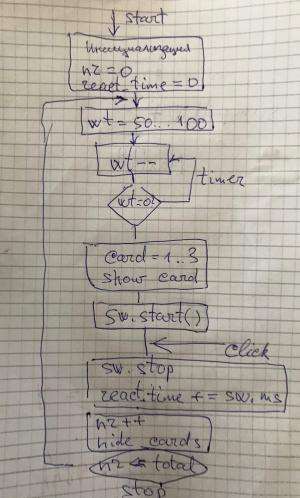 start
Инициализация
nr=0
react_time=0
wt=50...100
wt--
timer
wt=0?
card=1..3
show card
sw.start()
click
sw.stop
react.time += sw.ms
nr++
hide cards
nr <= total
stop